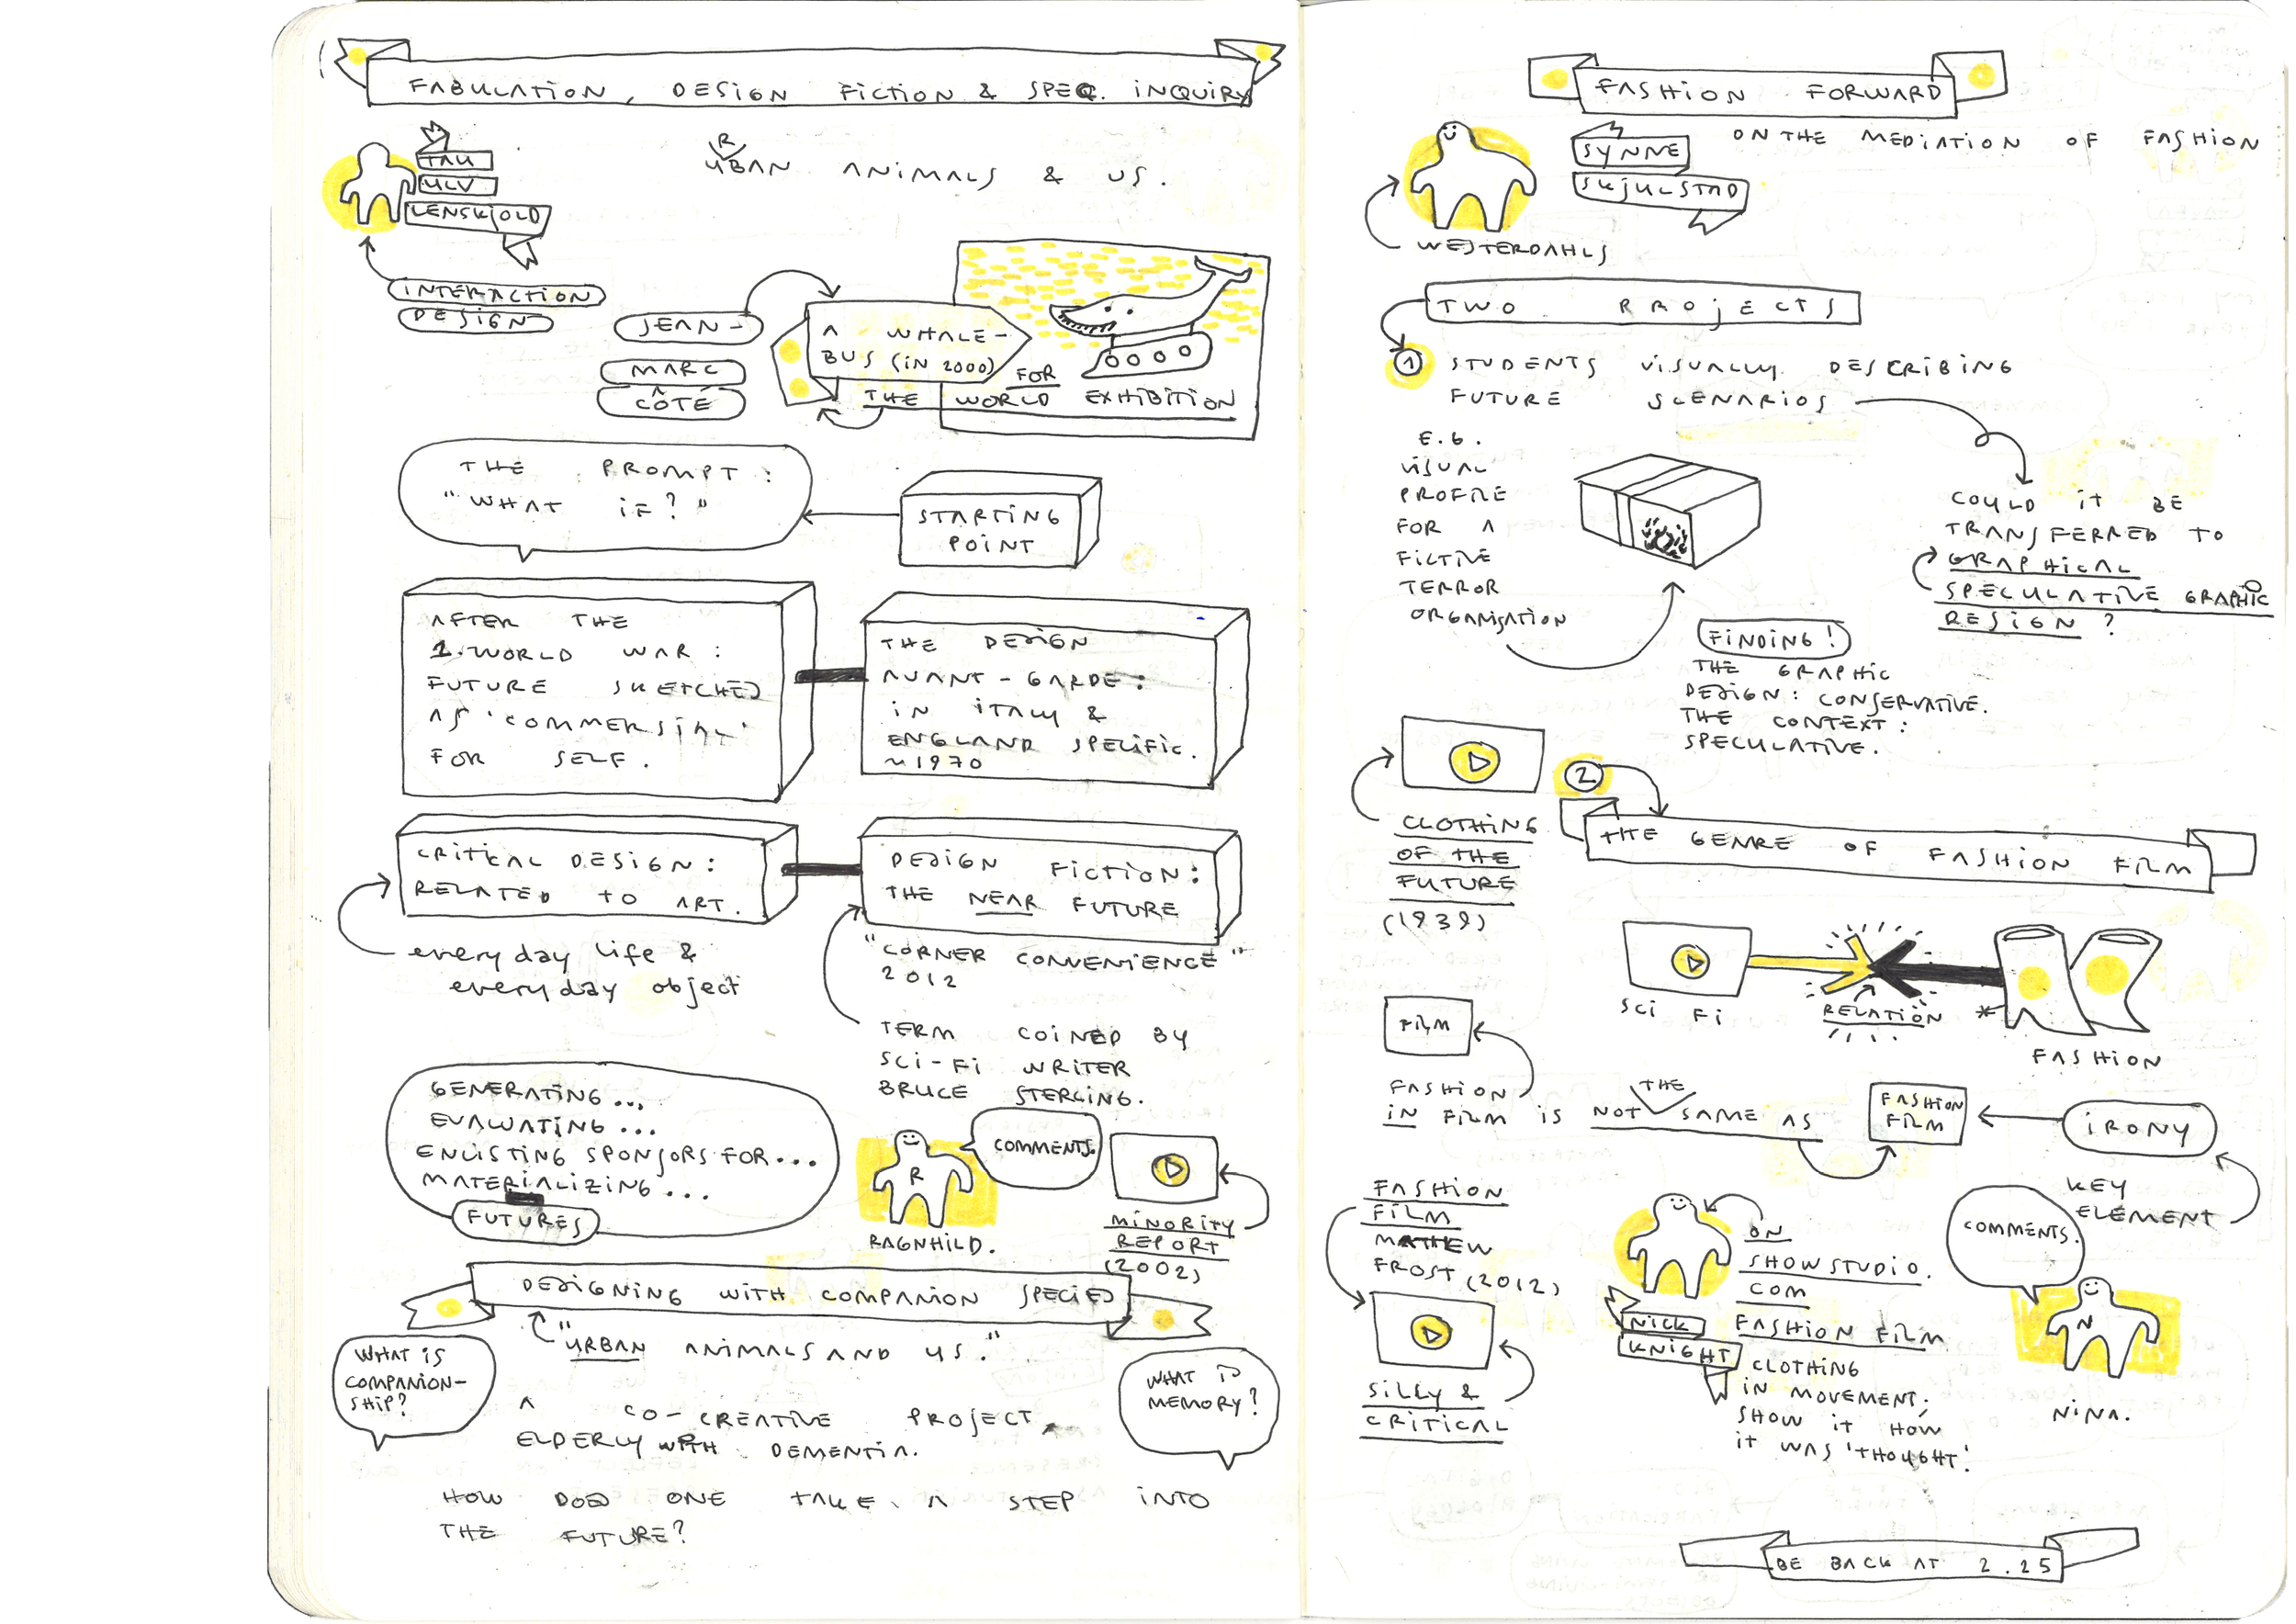 FABULATION, DESIGN FICTION & SPEC. INQUIRY
TAU
ULV
LENSKJOLD
URBAN ANIMALS & US.
INTERACTION
DESIGN
JEAN-
MARC
CÔTÉ
A WHALE-
BUS (IN 2000)
FOR
THE WORLD EXHIBITION
THE PROMPT:
"WHAT IF?"
STARTING
POINT
AFTER THE
1. WORLD WAR:
FUTURE SKETCHED
AS 'COMMERSIAL'
FOR SELF.
THE DESIGN
AVANT-GARDE:
IN ITALY &
ENGLAND SPECIFIC.
~1970
CRITICAL DESIGN:
RELATED TO ART.
DESIGN FICTION:
THE NEAR FUTURE
every day life &
every day object
"CORNER CONVENIENCE"
2012
TERM COINED BY
SCI-FI WRITER
BRUCE STERLING.
GENERATING...
EVALUATING...
ENLISTING SPONSORS FOR...
MATERIALIZING...
FUTURES
R
COMMENTS.
RAGNHILD.
MINORITY
REPORT
(2002)
DESIGNING WITH COMPANION SPECIES
"URBAN ANIMALS AND US."
WHAT IS
COMPANION-
SHIP?
WHAT IS
MEMORY?
A CO-CREATIVE PROJECT,
ELDERLY WITH DEMENTIA.
HOW DOES ONE TAKE A STEP INTO
THE FUTURE?
FASHION FORWARD
ON THE MEDIATION OF FASHION
SYNNE
SKJULSTAD
WESTERDAHLS
TWO PROJECTS
1 STUDENTS VISUALLY DESCRIBING
FUTURE SCENARIOS
E.G.
VISUAL
PROFILE
FOR A
FICTIVE
TERROR
ORGANISATION
COULD IT BE
TRANSFERRED TO
GRAPHICAL
SPECULATIVE GRAPHIC
DESIGN?
FINDING!
THE GRAPHIC
DESIGN: CONSERVATIVE.
THE CONTEXT:
SPECULATIVE.
CLOTHING
OF THE
FUTURE
(1939)
2
THE GENRE OF FASHION FILM
SCI FI
RELATION
*
FASHION
FILM
FASHION
IN FILM IS NOT THE SAME AS
FASHION
FILM
IRONY
KEY
ELEMENT
FASHION
FILM
MATHEW
FROST (2012)
SILLY &
CRITICAL
NICK
KNIGHT
ON
SHOWSTUDIO.
COM
FASHION FILM
CLOTHING
IN MOVEMENT.
SHOW IT HOW
IT WAS 'THOUGHT'.
COMMENTS.
N
NINA.
BE BACK AT 2.25